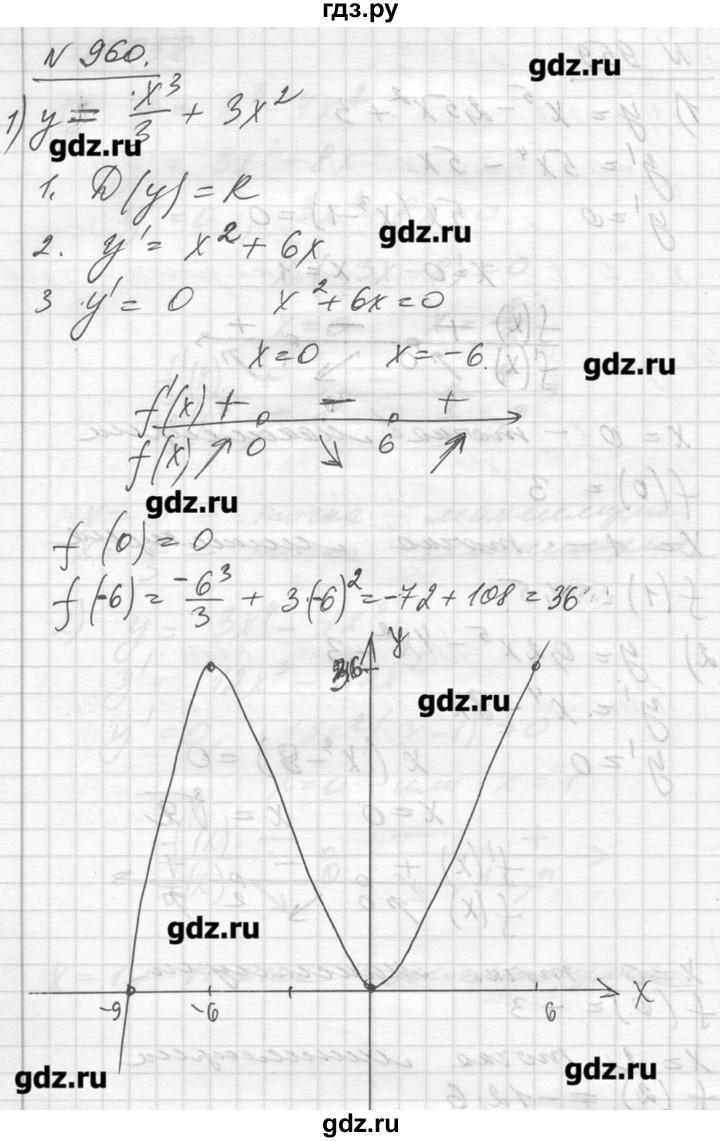 гдз.ру
N 960.
gdz.ru
1) y = x³/3 + 3x²
gdz.ru
1. D(y) = R
gdz.ru
2. y' = x² + 6x
3 y' = 0 x² + 6x = 0
x = 0 x = -6.
gdz.ru
f'(x) + - +
f(x) ↗ 0 ↘ 6 ↗
gdz.ru
f (0) = 0
f (-6) = -6³/3 + 3·(-6)² = -72 + 108 = 36
y
36
gdz.ru
gdz.ru
-9 -6 6 X
gdz.ru
gdz.ru
gdz.ru